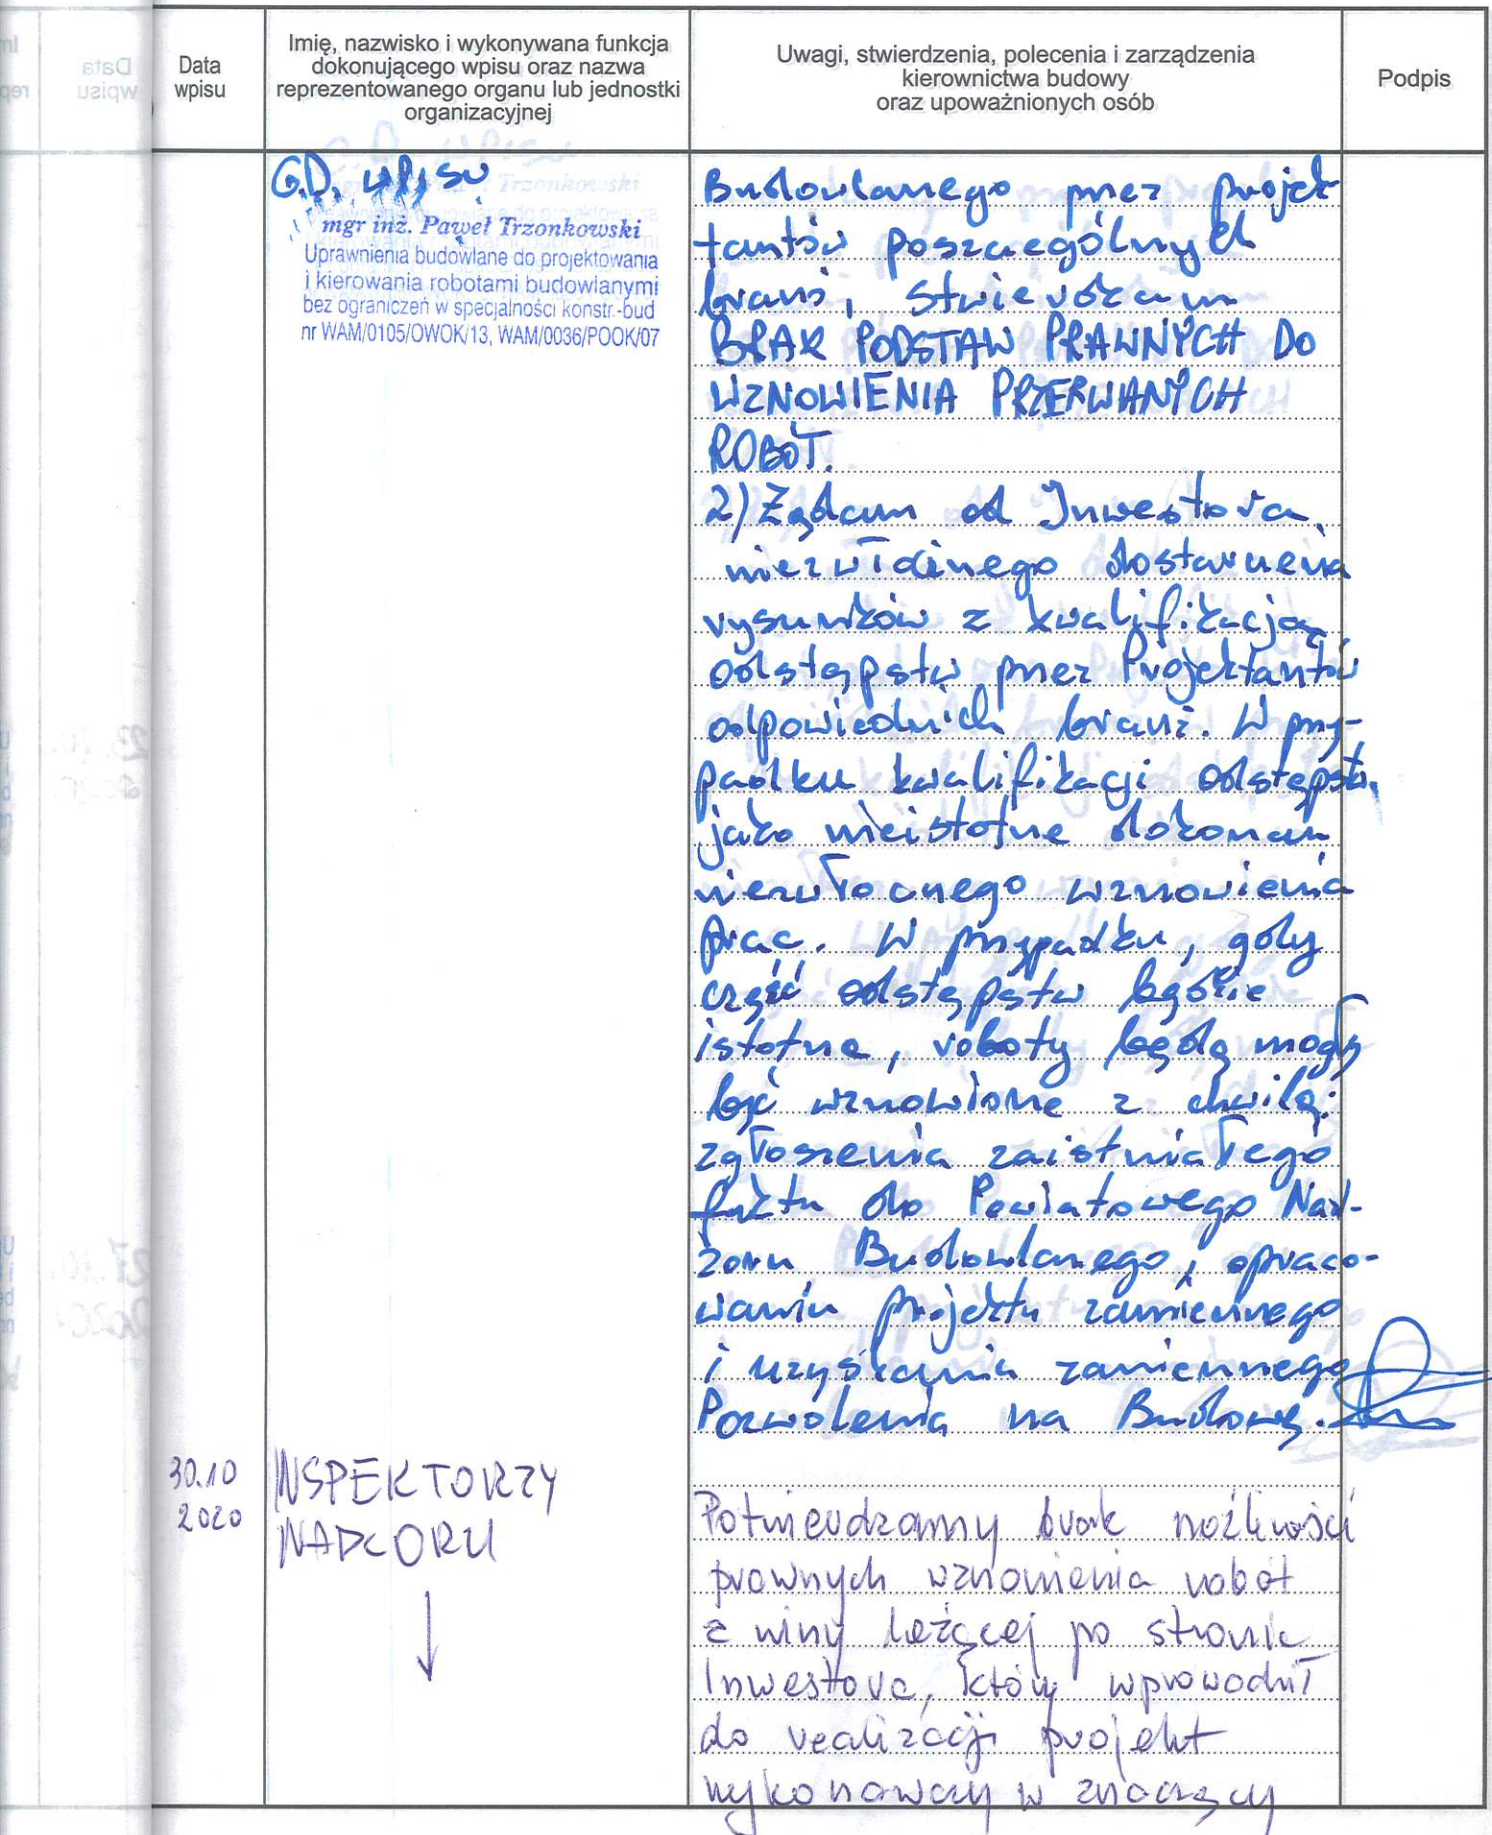 Data
wpisu
Imię, nazwisko i wykonywana funkcja
dokonującego wpisu oraz nazwa
reprezentowanego organu lub jednostki
organizacyjnej
Uwagi, stwierdzenia, polecenia i zarządzenia
kierownictwa budowy
oraz upoważnionych osób
Podpis
C.D. wpisu
mgr inż. Paweł Trzonkowski
Uprawnienia budowlane do projektowania
i kierowania robotami budowlanymi
bez ograniczeń w specjalności konstr.-bud
nr WAM/0105/OWOK/13, WAM/0036/POOK/07
Budowlanego przez projek
tantów poszczególnych
branż, stwierdzam
BRAK PODSTAW PRAWNYCH DO
WZNOWIENIA PRZERWANYCH
ROBÓT.
2) Żądam od Inwestora
niezwłocznego dostarczenia
rysunków z kwalifikacją
odstępstw przez Projektantów
odpowiednich branż. W przy-
padku kwalifikacji odstępstw
jako nieistotne dokonam
niezwłocznego wznowienia
prac. W przypadku, gdy
część odstępstw będzie
istotna, roboty będą mogły
być wznowione z chwilą:
zgłoszenia zaistniałego
faktu do Powiatowego Nad-
zoru Budowlanego, opraco-
waniu projektu zamiennego
i uzyskania zamiennego
Pozwolenia na Budowę.
30.10
2020
INSPEKTORZY
NADZORU
Potwierdzamy brak możliwości
prawnych wznowienia robót
z winy leżącej po stronie
Inwestora, który wprowadził
do realizacji projekt
wykonawczy w znaczący